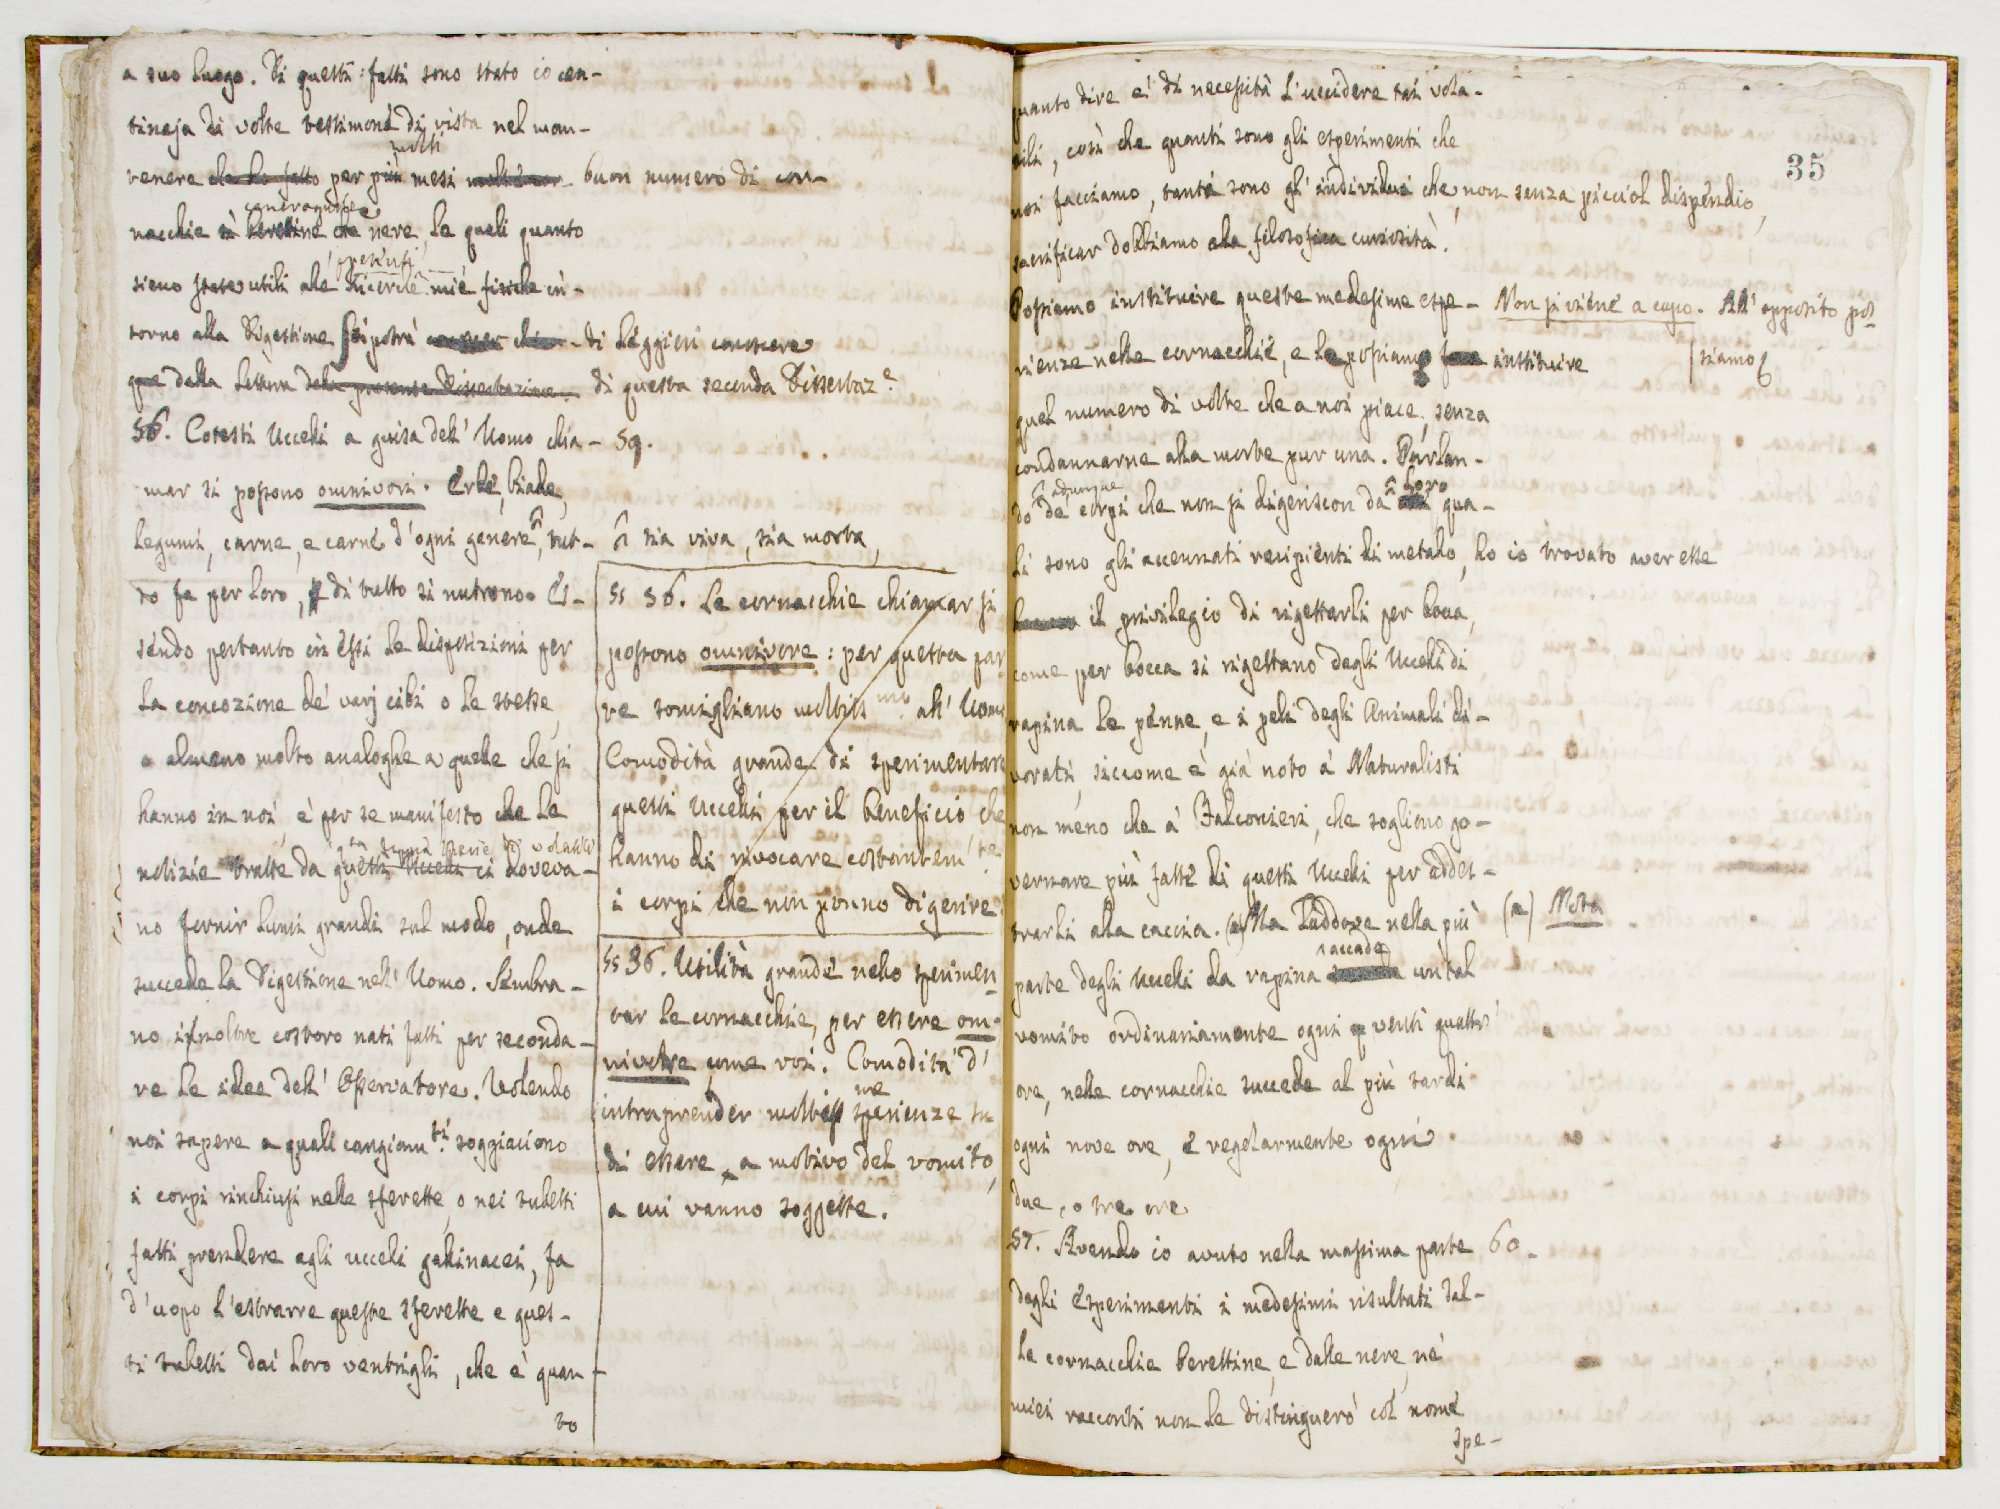 a suo luogo. Di questi fatti sono stato io cen-
tinaja di volte testimone di vista nel man-
tenere che ho fatto per più molti mesi buon numero di cor-
nacchie sì berettine che nere, le quali quanto
sieno state utili alle ricerche mie fisiche in-
torno alla Digestione si potrà di leggieri conoscere
dalla lettura della presente Dissertazione di questa seconda Dissertaz.e
56. Cotesti Uccelli a guisa dell' Uomo chia- 59.
mar si possono omnivori. Erbe, biade,
legumi, carne, e carne d'ogni genere, tut- sia viva, sia morta,
to fa per loro, di tutto si nutrono. Es-
sendo pertanto in essi le disposizioni per
la concozione de' varj cibi o le stesse,
o almeno molto analoghe a quelle che si
hanno in noi, è per se manifesto che le
notizie tratte da questi Uccelli ci doveva-
no fornir lumi grandi sul modo, onde
succede la Digestione nell' Uomo. Sembra-
no inoltre costoro nati fatti per seconda-
re le idee dell' Osservatore. Volendo
noi sapere a quali cangiam.ti soggiaciono
i corpi rinchiusi nelle sferette, o nei tubetti
fatti prendere agli uccelli gallinacei, fa
d'uopo l'estrarre queste sferette e ques-
ti tubetti dai loro ventrigli, che è quan-
to
§§ 56. Le cornacchie chiamar si
possono omnivore: per questa par
te somigliano moltiss.mo all' Uomo
Comodità grande di sperimentare
questi Uccelli per il beneficio, che
hanno di rivocare costantem.te
i corpi che non ponno digerire.
§§ 36. Utilità grande nello sperimen-
tar le cornacchie, per essere om-
nivore come noi. Comodità d'
intraprender moltiss.me sperienze su
di essere, a motivo del vomito,
a cui vanno soggette.
35
quanto dire è di necessità l'uccidere tai vola-
tili, così che quanti sono gli esperimenti che
noi facciamo, tanti sono gl'individui che, non senza picciol dispendio,
sacrificar dobbiamo alla filosofica curiosità.
Possiamo instituire queste medesime espe- Non si viene a capo. All' opposito pos
rienze nelle cornacchie, e le possiamo instituire siamo
quel numero di volte che a noi piace, senza
condannarne alla morte pur una. Parlan-
do adunque de' corpi che non si digeriscon da loro qua-
li sono gli accennati recipienti di metallo, ho io trovato aver esse
il privilegio di rigettarli per bocca,
come per bocca si rigettano degli Uccelli di
rapina le penne, e i peli degli Animali di-
vorati, siccome è già noto a' Naturalisti
non meno che a' Falconieri, che sogliono go-
vernare più fatte di questi Uccelli per addes-
trarli alla caccia. (a) Ma laddove nella più (a) Nota
parte degli Uccelli da rapina accade un tal
vomito ordinariamente ogni venti quattr'
ore, nelle cornacchie succede al più tardi
ogni nove ore, e regolarmente ogni
due, o tre ore.
57. Avendo io avuto nella massima parte 60.
degli esperimenti i medesimi risultati dal-
le cornacchie berettine, e dalle nere, ne'
miei racconti non le distinguerò col nome
spe-